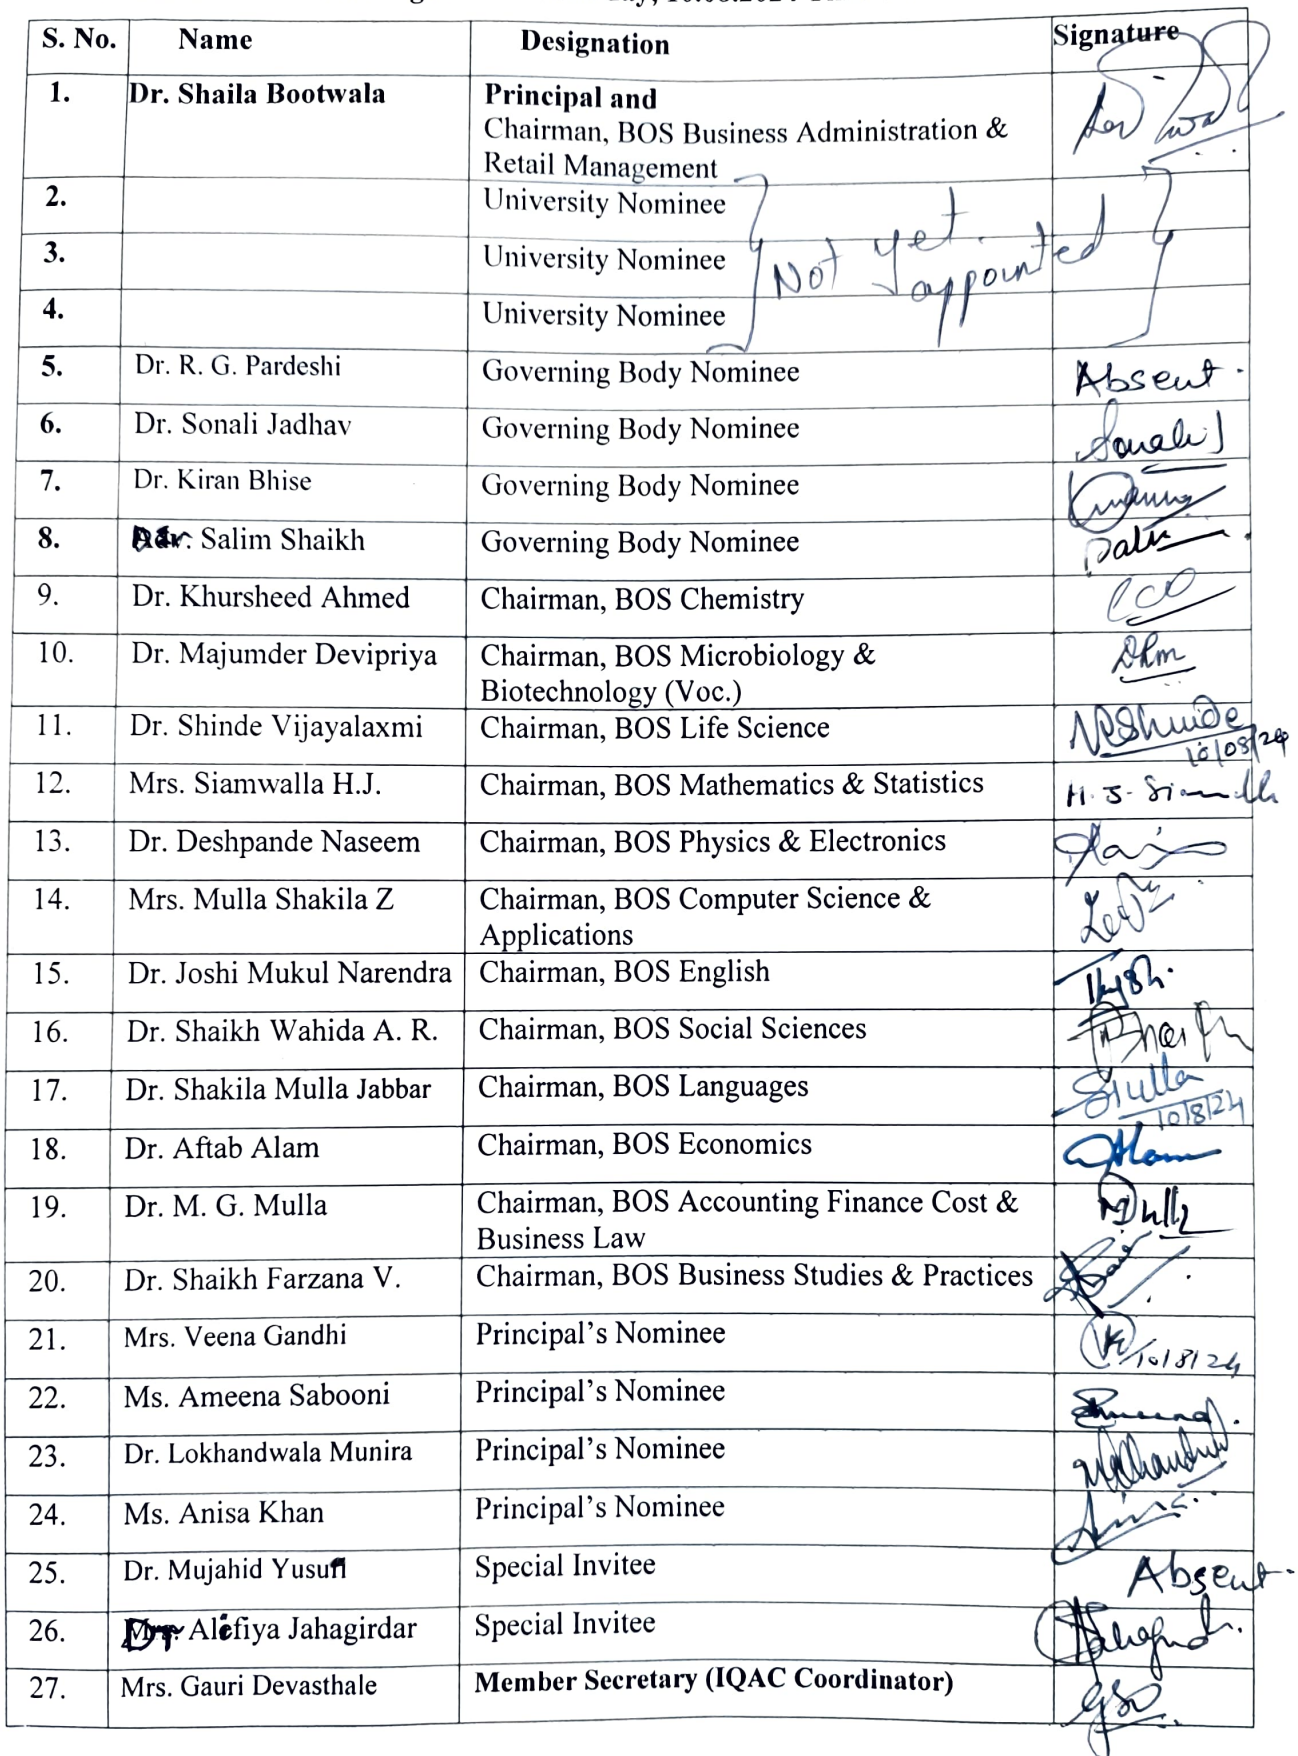 S. No. Name Designation Signature
1. Dr. Shaila Bootwala Principal and
Chairman, BOS Business Administration &
Retail Management
2. University Nominee
3. University Nominee
4. University Nominee
Not yet appointed
5. Dr. R. G. Pardeshi Governing Body Nominee Absent.
6. Dr. Sonali Jadhav Governing Body Nominee
7. Dr. Kiran Bhise Governing Body Nominee
8. Salim Shaikh Governing Body Nominee
9. Dr. Khursheed Ahmed Chairman, BOS Chemistry
10. Dr. Majumder Devipriya Chairman, BOS Microbiology &
Biotechnology (Voc.)
11. Dr. Shinde Vijayalaxmi Chairman, BOS Life Science
10/08/24
12. Mrs. Siamwalla H.J. Chairman, BOS Mathematics & Statistics
13. Dr. Deshpande Naseem Chairman, BOS Physics & Electronics
14. Mrs. Mulla Shakila Z Chairman, BOS Computer Science &
Applications
15. Dr. Joshi Mukul Narendra Chairman, BOS English
16. Dr. Shaikh Wahida A. R. Chairman, BOS Social Sciences
17. Dr. Shakila Mulla Jabbar Chairman, BOS Languages
10/8/24
18. Dr. Aftab Alam Chairman, BOS Economics
19. Dr. M. G. Mulla Chairman, BOS Accounting Finance Cost &
Business Law
20. Dr. Shaikh Farzana V. Chairman, BOS Business Studies & Practices
21. Mrs. Veena Gandhi Principal's Nominee 10/8/24
22. Ms. Ameena Sabooni Principal's Nominee
23. Dr. Lokhandwala Munira Principal's Nominee
24. Ms. Anisa Khan Principal's Nominee
25. Dr. Mujahid Yusuf Special Invitee Absent.
26. Dr Alefiya Jahagirdar Special Invitee
27. Mrs. Gauri Devasthale Member Secretary (IQAC Coordinator)